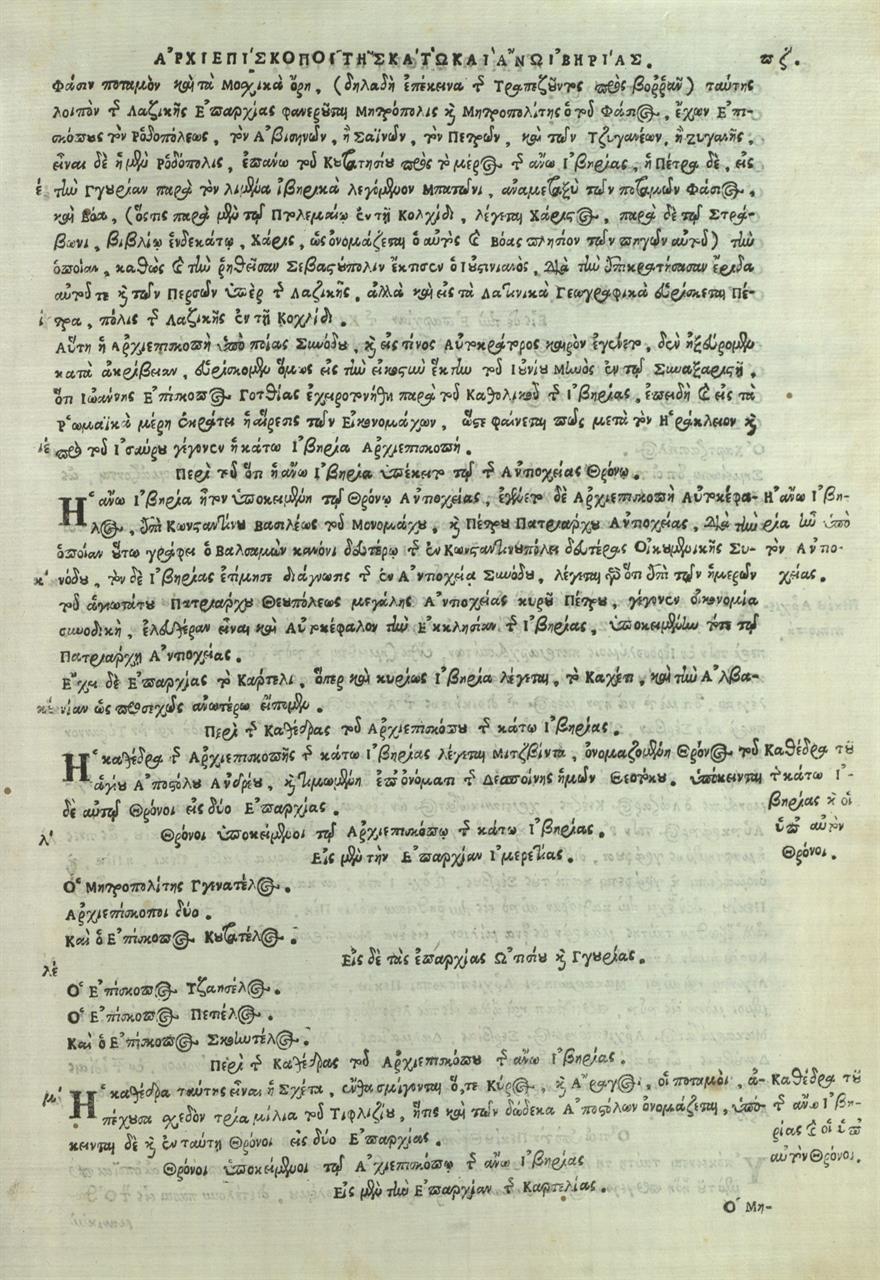 ΑΡΧΙΕΠΙΣΚΟΠΟΙ ΤΗΣ ΚΑΤΩ ΚΑΙ ΑΝΩ ΙΒΗΡΙΑΣ. πζ.
Φάσιν ποταμὸν καὶ τὰ Μοσχικὰ ὄρη, (δηλαδὴ ἐπέκεινα τῆς Τραπεζοῦντος πρὸς βοῤῥᾶν) ταύτης
λοιπὸν τῆς Λαζικῆς Ἐπαρχίας φανερώνεται Μητρόπολις καὶ Μητροπολίτης ὁ τοῦ Φάσιδος, ἔχων Ἐπι-
σκόπους τὸν Ῥοδοπόλεως, τὸν Ἀβισηνῶν, ἢ Σαϊνῶν, τὸν Πετρῶν, καὶ τῶν Τζυγανέων, ἢ Ζυγανῆς,
εἶναι δὲ ἡ μὲν Ῥοδόπολις, ἐπάνω τοῦ Κυτατησίου πρὸς τὸ μέρος τῆς ἄνω Ἰβηρίας, ἡ Πέτρα δὲ, εἰς
έ τὴν Γγουρίαν παρὰ τὸν λιμένα ἰβηρικὰ λεγόμενον Μπατῶνι, ἀναμεταξὺ τῶν ποταμῶν Φάσιδος,
καὶ Βόα, (ὅστις παρὰ μὲν τῷ Πτολεμαίῳ ἐν τῇ Κολχίδι, λέγεται Χάριστος, παρὰ δὲ τῷ Στρά-
βωνι, βιβλίῳ ἑνδεκάτῳ, Χάρις, ὡς ὀνομάζεται ὁ αὐτὸς καὶ Βόας πλησίον τῶν πηγῶν αὐτοῦ) τὴν
ὁποίαν, καθὼς καὶ τὴν ῥηθεῖσαν Σεβαστούπολιν ἔκτισεν ὁ Ἰουστινιανὸς, διὰ τὴν ἐπικρατήσασαν ἔριδα
αὐτοῦ τε καὶ τῶν Περσῶν ὑπὲρ τῆς Λαζικῆς, ἀλλὰ καὶ εἰς τὰ Λατινικὰ Γεωγραφικὰ εὑρίσκεται Πέ-
ί τρα, πόλις τῆς Λαζικῆς ἐν τῇ Κοχλίδι.
Αὕτη ἡ Ἀρχιεπισκοπὴ ὑπὸ ποίας Συνόδου, καὶ εἰς τίνος Αὐτοκράτορος καιρὸν ἐγένετο, δὲν ἠξεύρομεν
κατὰ ἀκρίβειαν, εὑρίσκομεν ὅμως εἰς τὴν εἰκοστὴν ἕκτην τοῦ Ἰουνίου Μηνὸς ἐν τῷ Συναξαριστῇ,
ὅτι Ἰωάννης Ἐπίσκοπος Γοτθίας ἐχειροτονήθη παρὰ τοῦ Καθολικοῦ τῆς Ἰβηρίας, ἐπειδὴ καὶ εἰς τὰ
Ῥωμαϊκὰ μέρη ἐκράτει ἡ αἵρεσις τῶν Εἰκονομάχων, ὥστε φαίνεται πῶς μετὰ τὸν Ἡράκλειον καὶ
ιέ πρὸ τοῦ Ἰσαύρου γέγονεν ἡ κάτω Ἰβηρία Ἀρχιεπισκοπή.
Περὶ τοῦ ὅτι ἡ ἄνω Ἰβηρία ὑπέκειτο τῷ τῆς Ἀντιοχείας Θρόνῳ.
Ἡ ἄνω Ἰβηρία ἦτον ὑποκειμένη τῷ Θρόνῳ Ἀντιοχείας, ἐγένετο δὲ Ἀρχιεπισκοπὴ Αὐτοκέφα-
λος, ἐπὶ Κωνσταντίνου Βασιλέως τοῦ Μονομάχου, καὶ Πέτρου Πατριάρχου Ἀντιοχείας, διὰ τὴν
ὁποίαν οὕτω γράφει ὁ Βαλσαμὼν κανόνι δευτέρῳ τῆς ἐν Κωνσταντινουπόλει δευτέρας Οἰκουμενικῆς Συ-
κ' νόδου, τὸν δὲ Ἰβηρίας ἐτίμησε διάγνωσις τῆς ἐν Ἀντιοχείᾳ Συνόδου, λέγεται γὰρ ὅτι ἐπὶ τῶν ἡμερῶν
τοῦ ἁγιωτάτου Πατριάρχου Θεουπόλεως μεγάλης Ἀντιοχείας κυροῦ Πέτρου, γέγονεν οἰκονομία
συνοδικὴ, ἐλευθέραν εἶναι καὶ Αὐτοκέφαλον τὴν Ἐκκλησίαν τῆς Ἰβηρίας, ὑποκειμένην τότε τῷ
Πατριάρχῃ Ἀντιοχείας.
Ἔχει δὲ Ἐπαρχίας τὸ Καρτέλι, ὅπερ καὶ κυρίως Ἰβηρία λέγεται, τὸ Καχέτι, καὶ τὴν Ἀλβα-
κέ νίαν ὡς προσεχῶς ἀνωτέρω εἴπομεν.
Ἡ ἄνω Ἰβη-
ρία ἦν ὑπὸ
τὸν Ἀντιο-
χείας.
Περὶ τῆς Καθέδρας τοῦ Ἀρχιεπισκόπου τῆς κάτω Ἰβηρίας.
Ἡ καθέδρα τῆς Ἀρχιεπισκοπῆς τῆς κάτω Ἰβηρίας λέγεται Μιτζβίντα, ὀνομαζομένη Θρόνος τοῦ
ἁγίου Ἀποστόλου Ἀνδρέου, καὶ τιμωμένη ἐπ' ὀνόματι τῆς Δεσποίνης ἡμῶν Θεοτόκου. ὑπόκεινται
δὲ αὐτῷ Θρόνοι εἰς δύο Ἐπαρχίας.
Καθέδρα τοῦ
τῆς κάτω Ἰ-
βηρίας καὶ οἱ
ὑπ' αὐτὸν
Θρόνοι.
λ' Θρόνοι ὑποκείμενοι τῷ Ἀρχιεπισκόπῳ τῆς κάτω Ἰβηρίας.
Εἰς μὲν τὴν Ἐπαρχίαν Ἰμερετίας.
Ὁ Μητροπολίτης Γγενατέλος.
Ἀρχιεπίσκοποι δύο.
Καὶ ὁ Ἐπίσκοπος Κυτατέλος.
λέ Εἰς δὲ τὰς ἐπαρχίας Ὠτησίου καὶ Γγουρίας.
Ὁ Ἐπίσκοπος Τζαησέλος.
Ὁ Ἐπίσκοπος Πετιέλος.
Καὶ ὁ Ἐπίσκοπος Σκουτέλος.
Περὶ τῆς Καθέδρας τοῦ Ἀρχιεπισκόπου τῆς ἄνω Ἰβηρίας.
μ' Ἡ καθέδρα ταύτης εἶναι ἡ Σχέτα, ἔνθα σμίγονται ὅ, τε Κῦρος, καὶ Ἄραγος, οἱ ποταμοὶ, ἀ-
πέχουσα σχεδὸν τρία μίλια τοῦ Τιφλιζίου, ἥτις καὶ τῶν δώδεκα Ἀποστόλων ὀνομάζεται, ὑπό-
κεινται δὲ καὶ ἐν ταύτῃ Θρόνοι εἰς δύο Ἐπαρχίας.
Καθέδρα τοῦ
τῆς ἄνω Ἰβη-
ρίας καὶ οἱ ὑπ'
αὐτὴν Θρόνοι.
Θρόνοι ὑποκείμενοι τῷ Ἀρχιεπισκόπῳ τῆς ἄνω Ἰβηρίας
Εἰς μὲν τὴν Ἐπαρχίαν τῆς Καρτελίας.
Ὁ Μη-